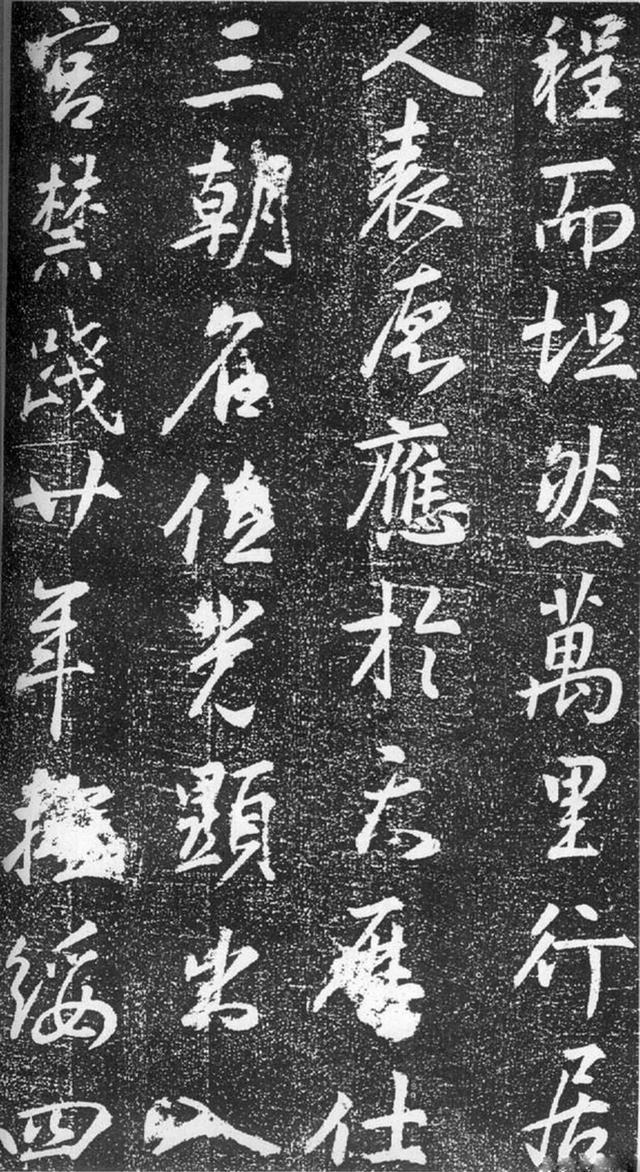 程而坦然萬里行居
人表慶應於歷仕
三朝名位光顯出入
宮禁踐廿年綏四